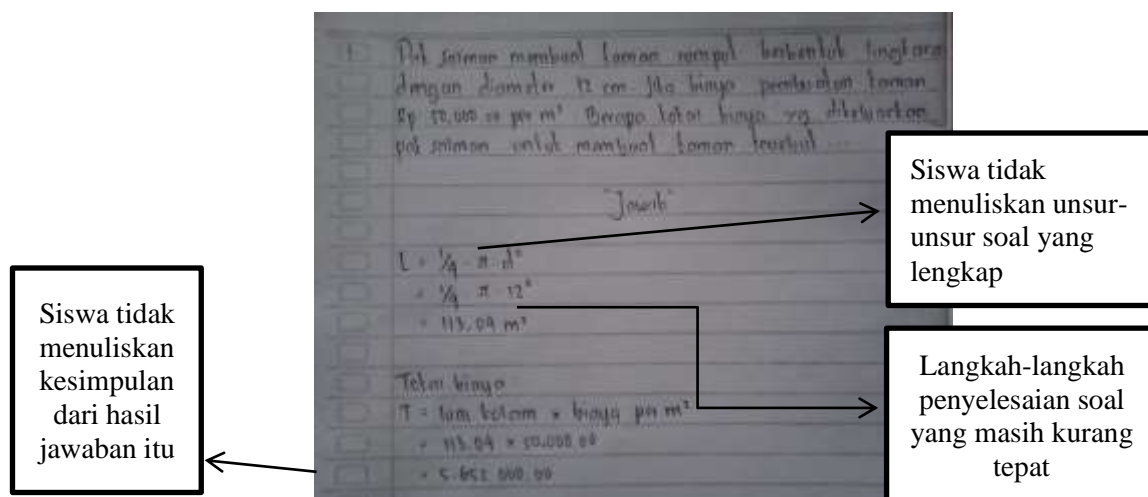 1 Pak saiman membuat taman rumput berbentuk lingkaran
dengan diameter 12 cm jika biaya pembuatan taman
Rp 50.000.00 per m² Berapa total biaya yg dikeluarkan
pak saiman untuk membuat taman tersebut ...
"Jawab"
L = 1/4 . π . d²
= 1/4 π 12²
= 113.04 m²
Total biaya
T = luas kolam × biaya per m²
= 113.04 × 50.000.00
= 5.652.000.00
Siswa tidak
menuliskan unsur-
unsur soal yang
lengkap
Langkah-langkah
penyelesaian soal
yang masih kurang
tepat
Siswa tidak
menuliskan
kesimpulan
dari hasil
jawaban itu